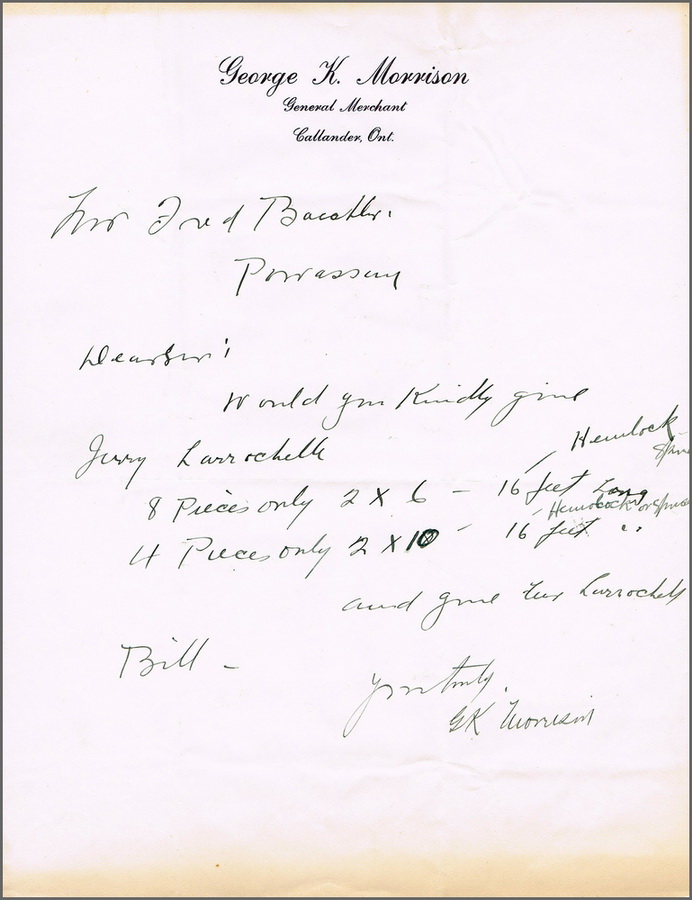 George K. Morrison
General Merchant
Callander, Ont.
Mr Fred
Powassan
Dear Sir:
Would you Kindly give
Jerry Larrochelle
Hemlock
8 Pieces only 2 X 6 - 16 feet Long
Hemlock or Spruce
4 Pieces only 2 X 10 - 16 feet "
and give Mr Larrochelle
Bill -
Yours truly.
GK Morrison